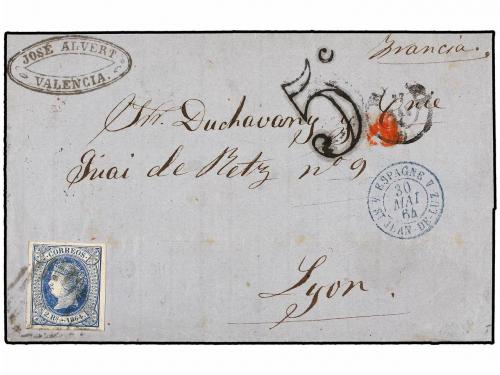 JOSÉ ALVERT
VALENCIA.
Francia.
5 c
Sr. Duchavany y Cnie
Quai de Retz nº 9
Lyon.
ESPAGNE
30
MAI
64
ST JEAN-DE-LUZ
CORREOS
2 Rs 1864